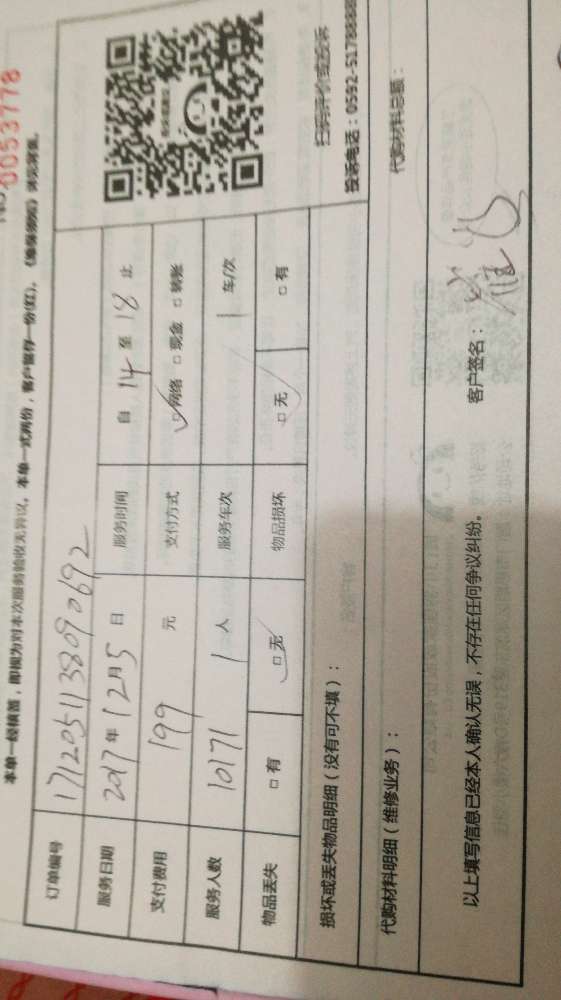 No.0053778
本单一经核签，即视为对本次服务验收无异议。本单一式两份，客户留存一份(红)。
订单编号 1712051138090692
服务日期 2017年12月5日 服务时间 自 14 至 18 止
支付费用 199 元 支付方式 ☑网络 □现金 □转账
服务人数 10171 1 人 服务车次 1 车/次
物品丢失 □有 ☑无 物品损坏 ☑无 □有
扫码评价或投诉
投诉电话：0592-5178888
损坏或丢失物品明细（没有可不填）：
代购材料明细（维修业务）： 代购材料总额：
以上填写信息已经本人确认无误，不存在任何争议纠纷。 客户签名：